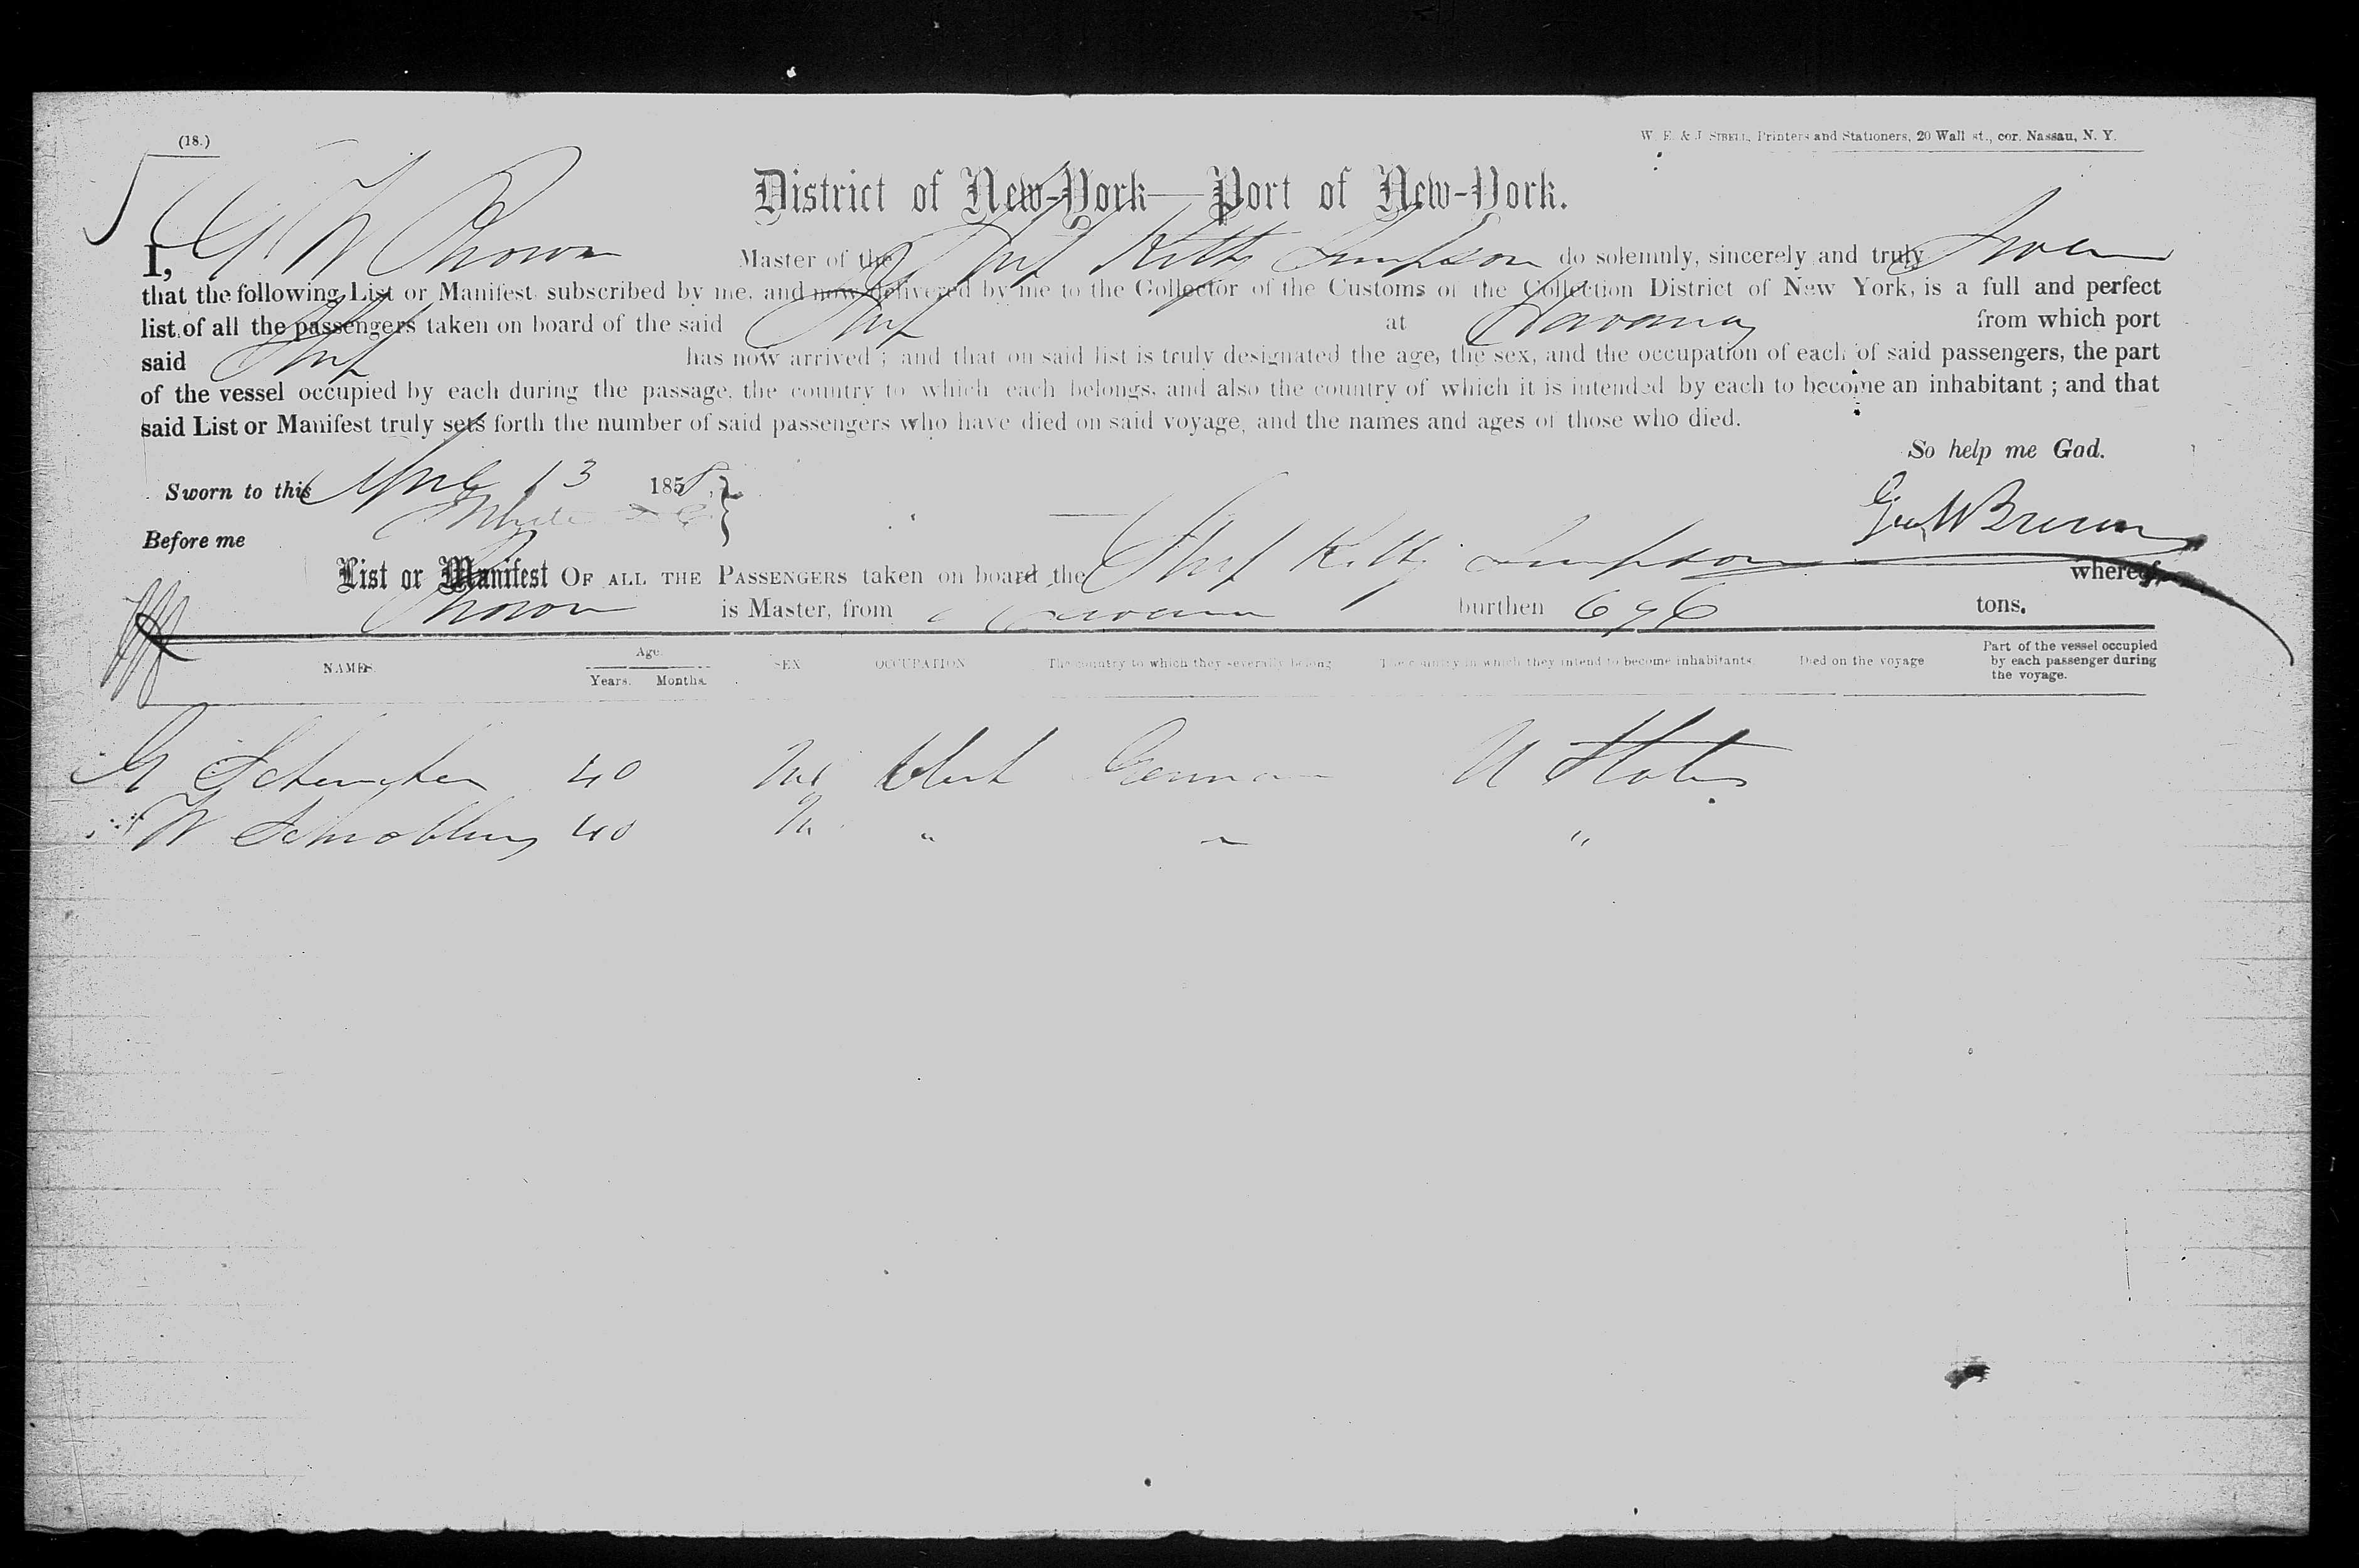 (18.)
W. E. & J. SIBELL, Printers and Stationers, 20 Wall st., cor. Nassau, N. Y.
District of New-York—Port of New-York.
I, G W Brown Master of the Ship Kitty Simpson do solemnly, sincerely and truly Swear
that the following List or Manifest, subscribed by me, and now delivered by me to the Collector of the Customs of the Collection District of New York, is a full and perfect
list of all the passengers taken on board of the said Ship at Havana from which port
said Ship has now arrived; and that on said list is truly designated the age, the sex, and the occupation of each of said passengers, the part
of the vessel occupied by each during the passage, the country to which each belongs, and also the country of which it is intended by each to become an inhabitant; and that
said List or Manifest truly sets forth the number of said passengers who have died on said voyage, and the names and ages of those who died.
So help me God.
Sworn to this April 13 1858,
Geo W Brown
Before me
List or Manifest OF ALL THE PASSENGERS taken on board the Ship Kitty Simpson whereof
Brown is Master, from Havana burthen 696 tons.
NAMES. Age. Years. Months. SEX OCCUPATION The country to which they severally belong The country in which they intend to become inhabitants Died on the voyage Part of the vessel occupied by each passenger during the voyage.
40 M Germany U States
W 40 M " " "